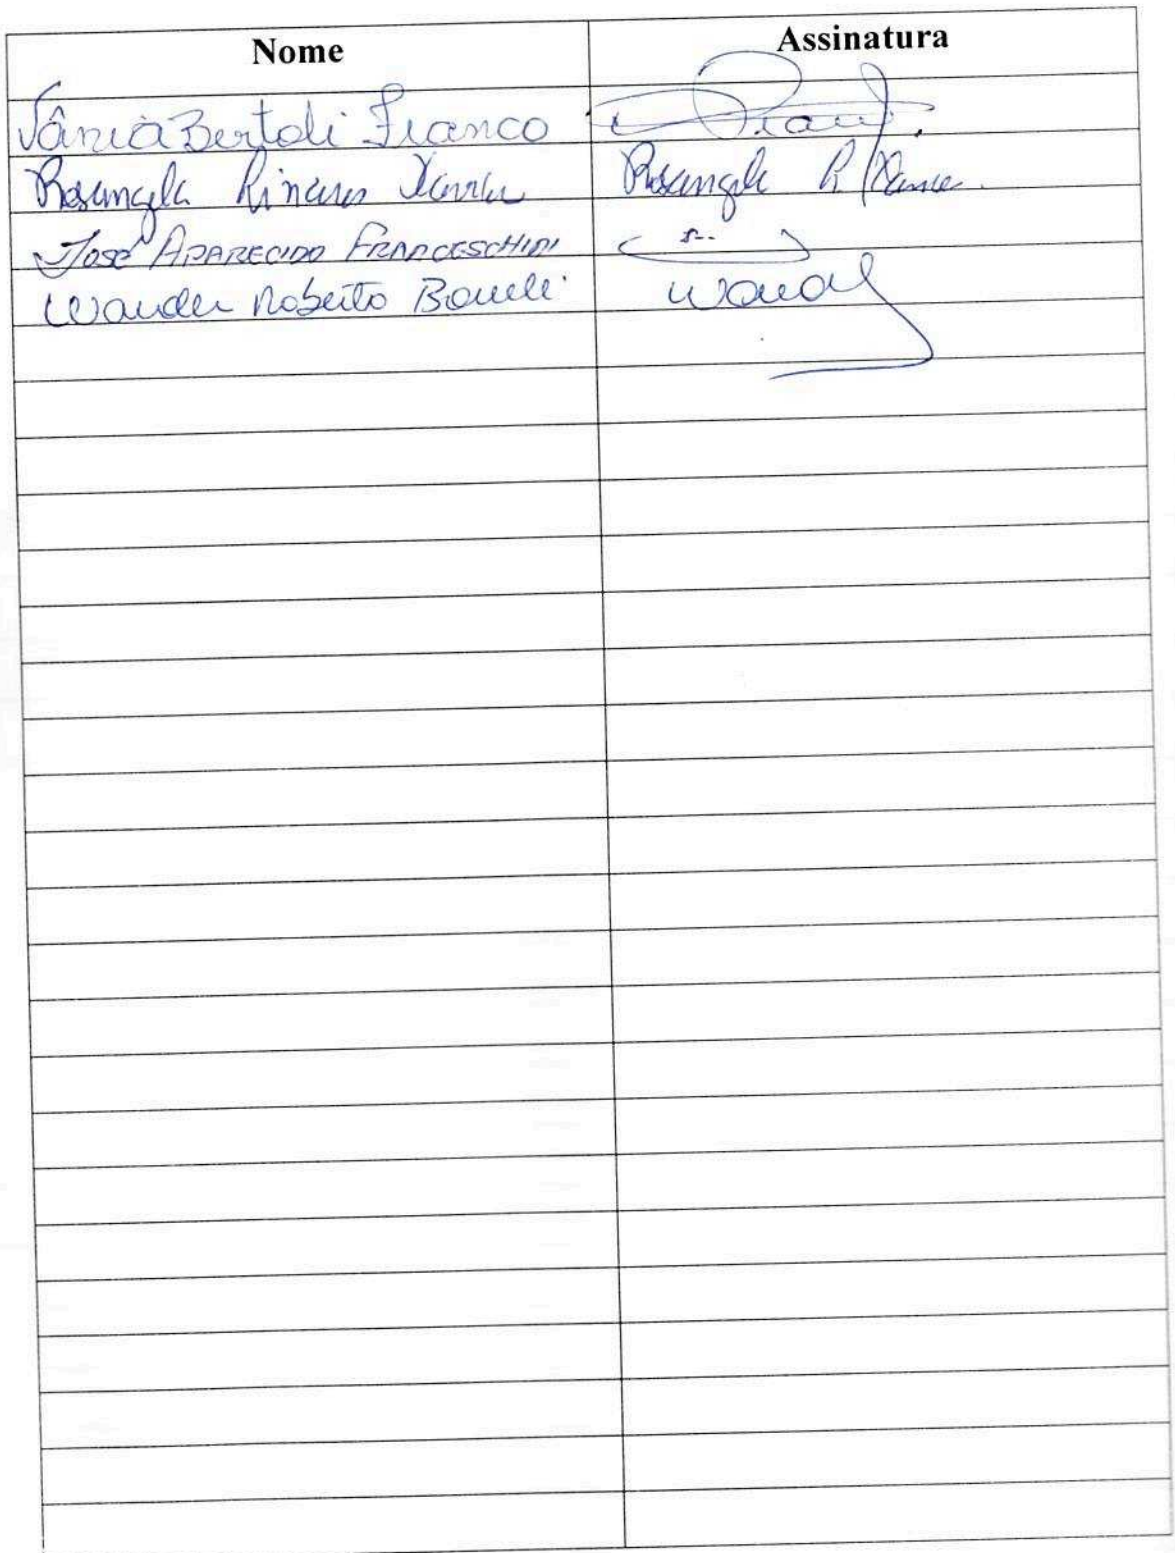 Nome Assinatura
Vânia Bertoli Franco
Rosangela Linares Xavier Rosangela L Xavier
José APARECIDO FRANCESCHINI
Wander Roberto Boneli Wand